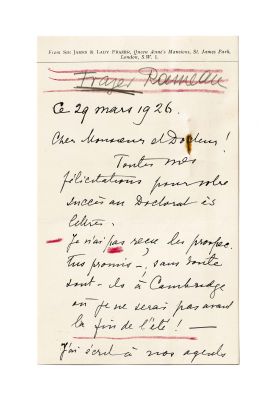 From SIR JAMES & LADY FRAZER, Queen Anne's Mansions, St. James Park,
London, S.W. 1.
Frazer Rameau
Ce 29 mars 1926.
Cher Monsieur et Docteur !
Toutes mes
félicitations pour votre
succès au Doctorat ès
lettres.
Je n'ai pas reçu les prospec-
tus promis –, sans doute
sont-ils à Cambridge
où je ne serai pas avant
la fin de l'été ! —
J'ai écrit à nos agents